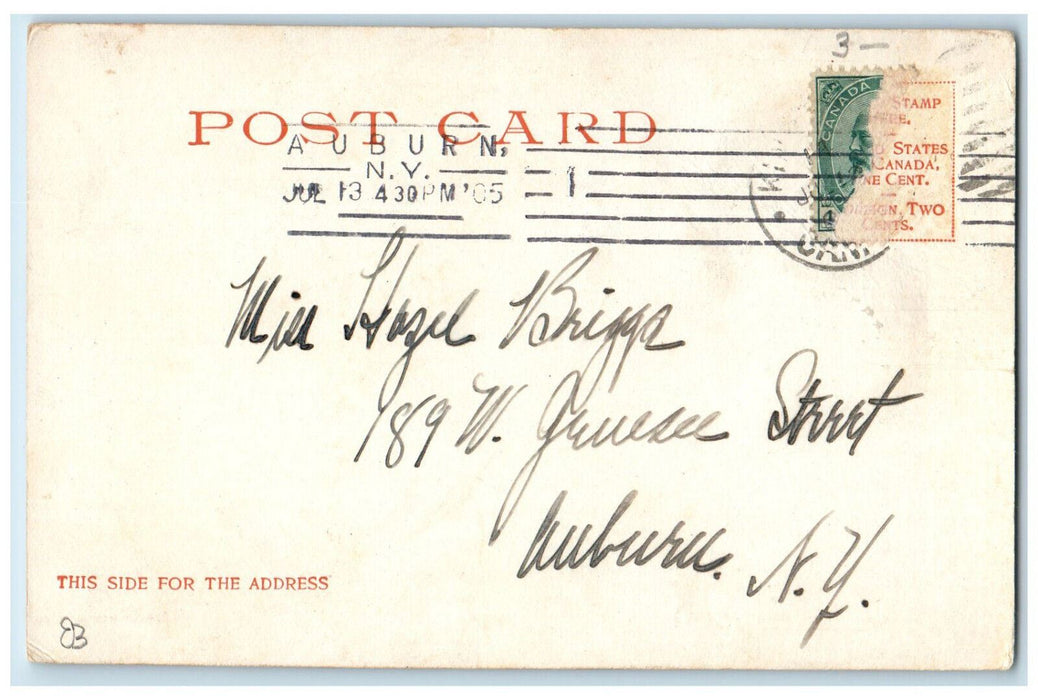 3 —
POST CARD
AUBURN,
N.Y.
JUL 13 4 30 PM '05
1
CANADA
STAMP
STATES
CANADA,
ONE CENT.
TWO
CENTS.
Miss Hazel Briggs
189 W. Genesee Street
Auburn. N.Y.
THIS SIDE FOR THE ADDRESS